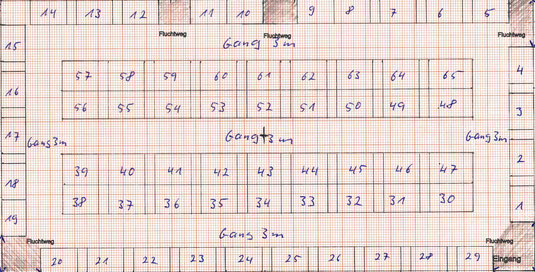 14 13 12 11 10 9 8 7 6 5
Fluchtweg Fluchtweg Fluchtweg
Gang 3m
15 4
57 58 59 60 61 62 63 64 65
16
56 55 54 53 52 51 50 49 48
3
17 Gang 3m Gang 3m Gang 3m
2
39 40 41 42 43 44 45 46 47
18
38 37 36 35 34 33 32 31 30
1
19
Gang 3m
Fluchtweg Fluchtweg
20 21 22 23 24 25 26 27 28 29 Eingang